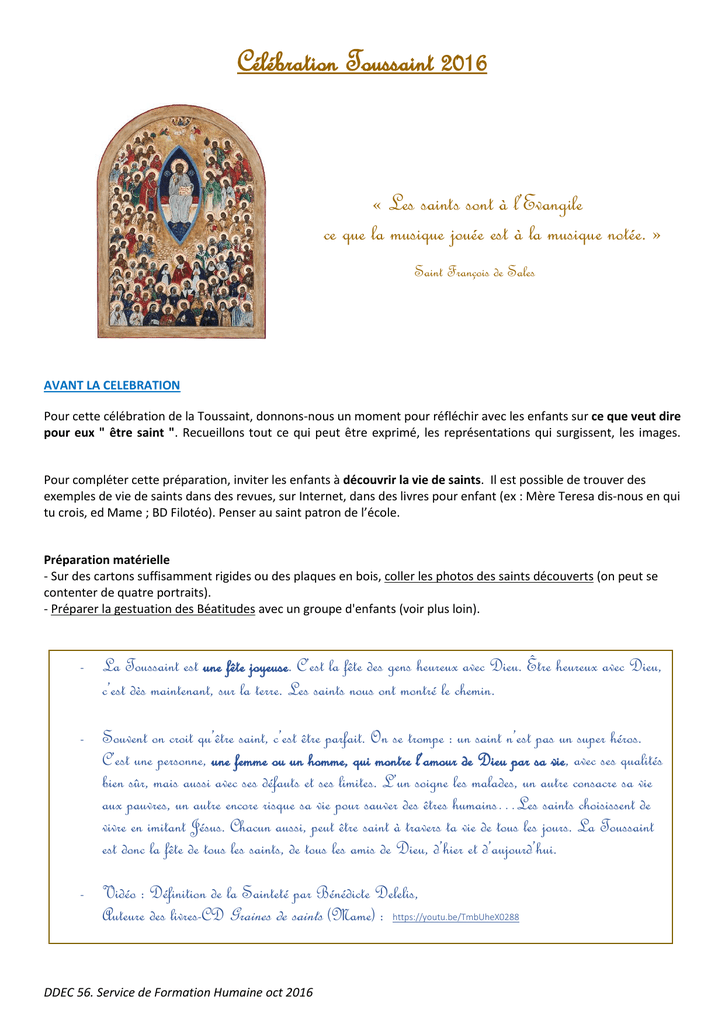 Célébration Toussaint 2016
« Les saints sont à l'Evangile
ce que la musique jouée est à la musique notée. »
Saint François de Sales
AVANT LA CELEBRATION
Pour cette célébration de la Toussaint, donnons-nous un moment pour réfléchir avec les enfants sur ce que veut dire
pour eux " être saint ". Recueillons tout ce qui peut être exprimé, les représentations qui surgissent, les images.
Pour compléter cette préparation, inviter les enfants à découvrir la vie de saints. Il est possible de trouver des
exemples de vie de saints dans des revues, sur Internet, dans des livres pour enfant (ex : Mère Teresa dis-nous en qui
tu crois, ed Mame ; BD Filotéo). Penser au saint patron de l'école.
Préparation matérielle
- Sur des cartons suffisamment rigides ou des plaques en bois, coller les photos des saints découverts (on peut se
contenter de quatre portraits).
- Préparer la gestuation des Béatitudes avec un groupe d'enfants (voir plus loin).
- La Toussaint est une fête joyeuse. C'est la fête des gens heureux avec Dieu. Être heureux avec Dieu,
c'est dès maintenant, sur la terre. Les saints nous ont montré le chemin.
- Souvent on croit qu'être saint, c'est être parfait. On se trompe : un saint n'est pas un super héros.
C'est une personne, une femme ou un homme, qui montre l'amour de Dieu par sa vie, avec ses qualités
bien sûr, mais aussi avec ses défauts et ses limites. L'un soigne les malades, un autre consacre sa vie
aux pauvres, un autre encore risque sa vie pour sauver des êtres humains…Les saints choisissent de
vivre en imitant Jésus. Chacun aussi, peut être saint à travers ta vie de tous les jours. La Toussaint
est donc la fête de tous les saints, de tous les amis de Dieu, d'hier et d'aujourd'hui.
- Vidéo : Définition de la Sainteté par Bénédicte Delelis,
Auteure des livres-CD Graines de saints (Mame) : https://youtu.be/TmbUheX0288
DDEC 56. Service de Formation Humaine oct 2016